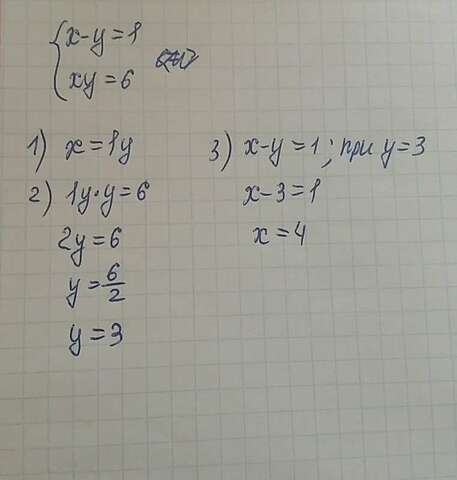 x-y=1
xy=6
1) x=1y
2) 1y·y=6
2y=6
y=6/2
y=3
3) x-y=1; при y=3
x-3=1
x=4